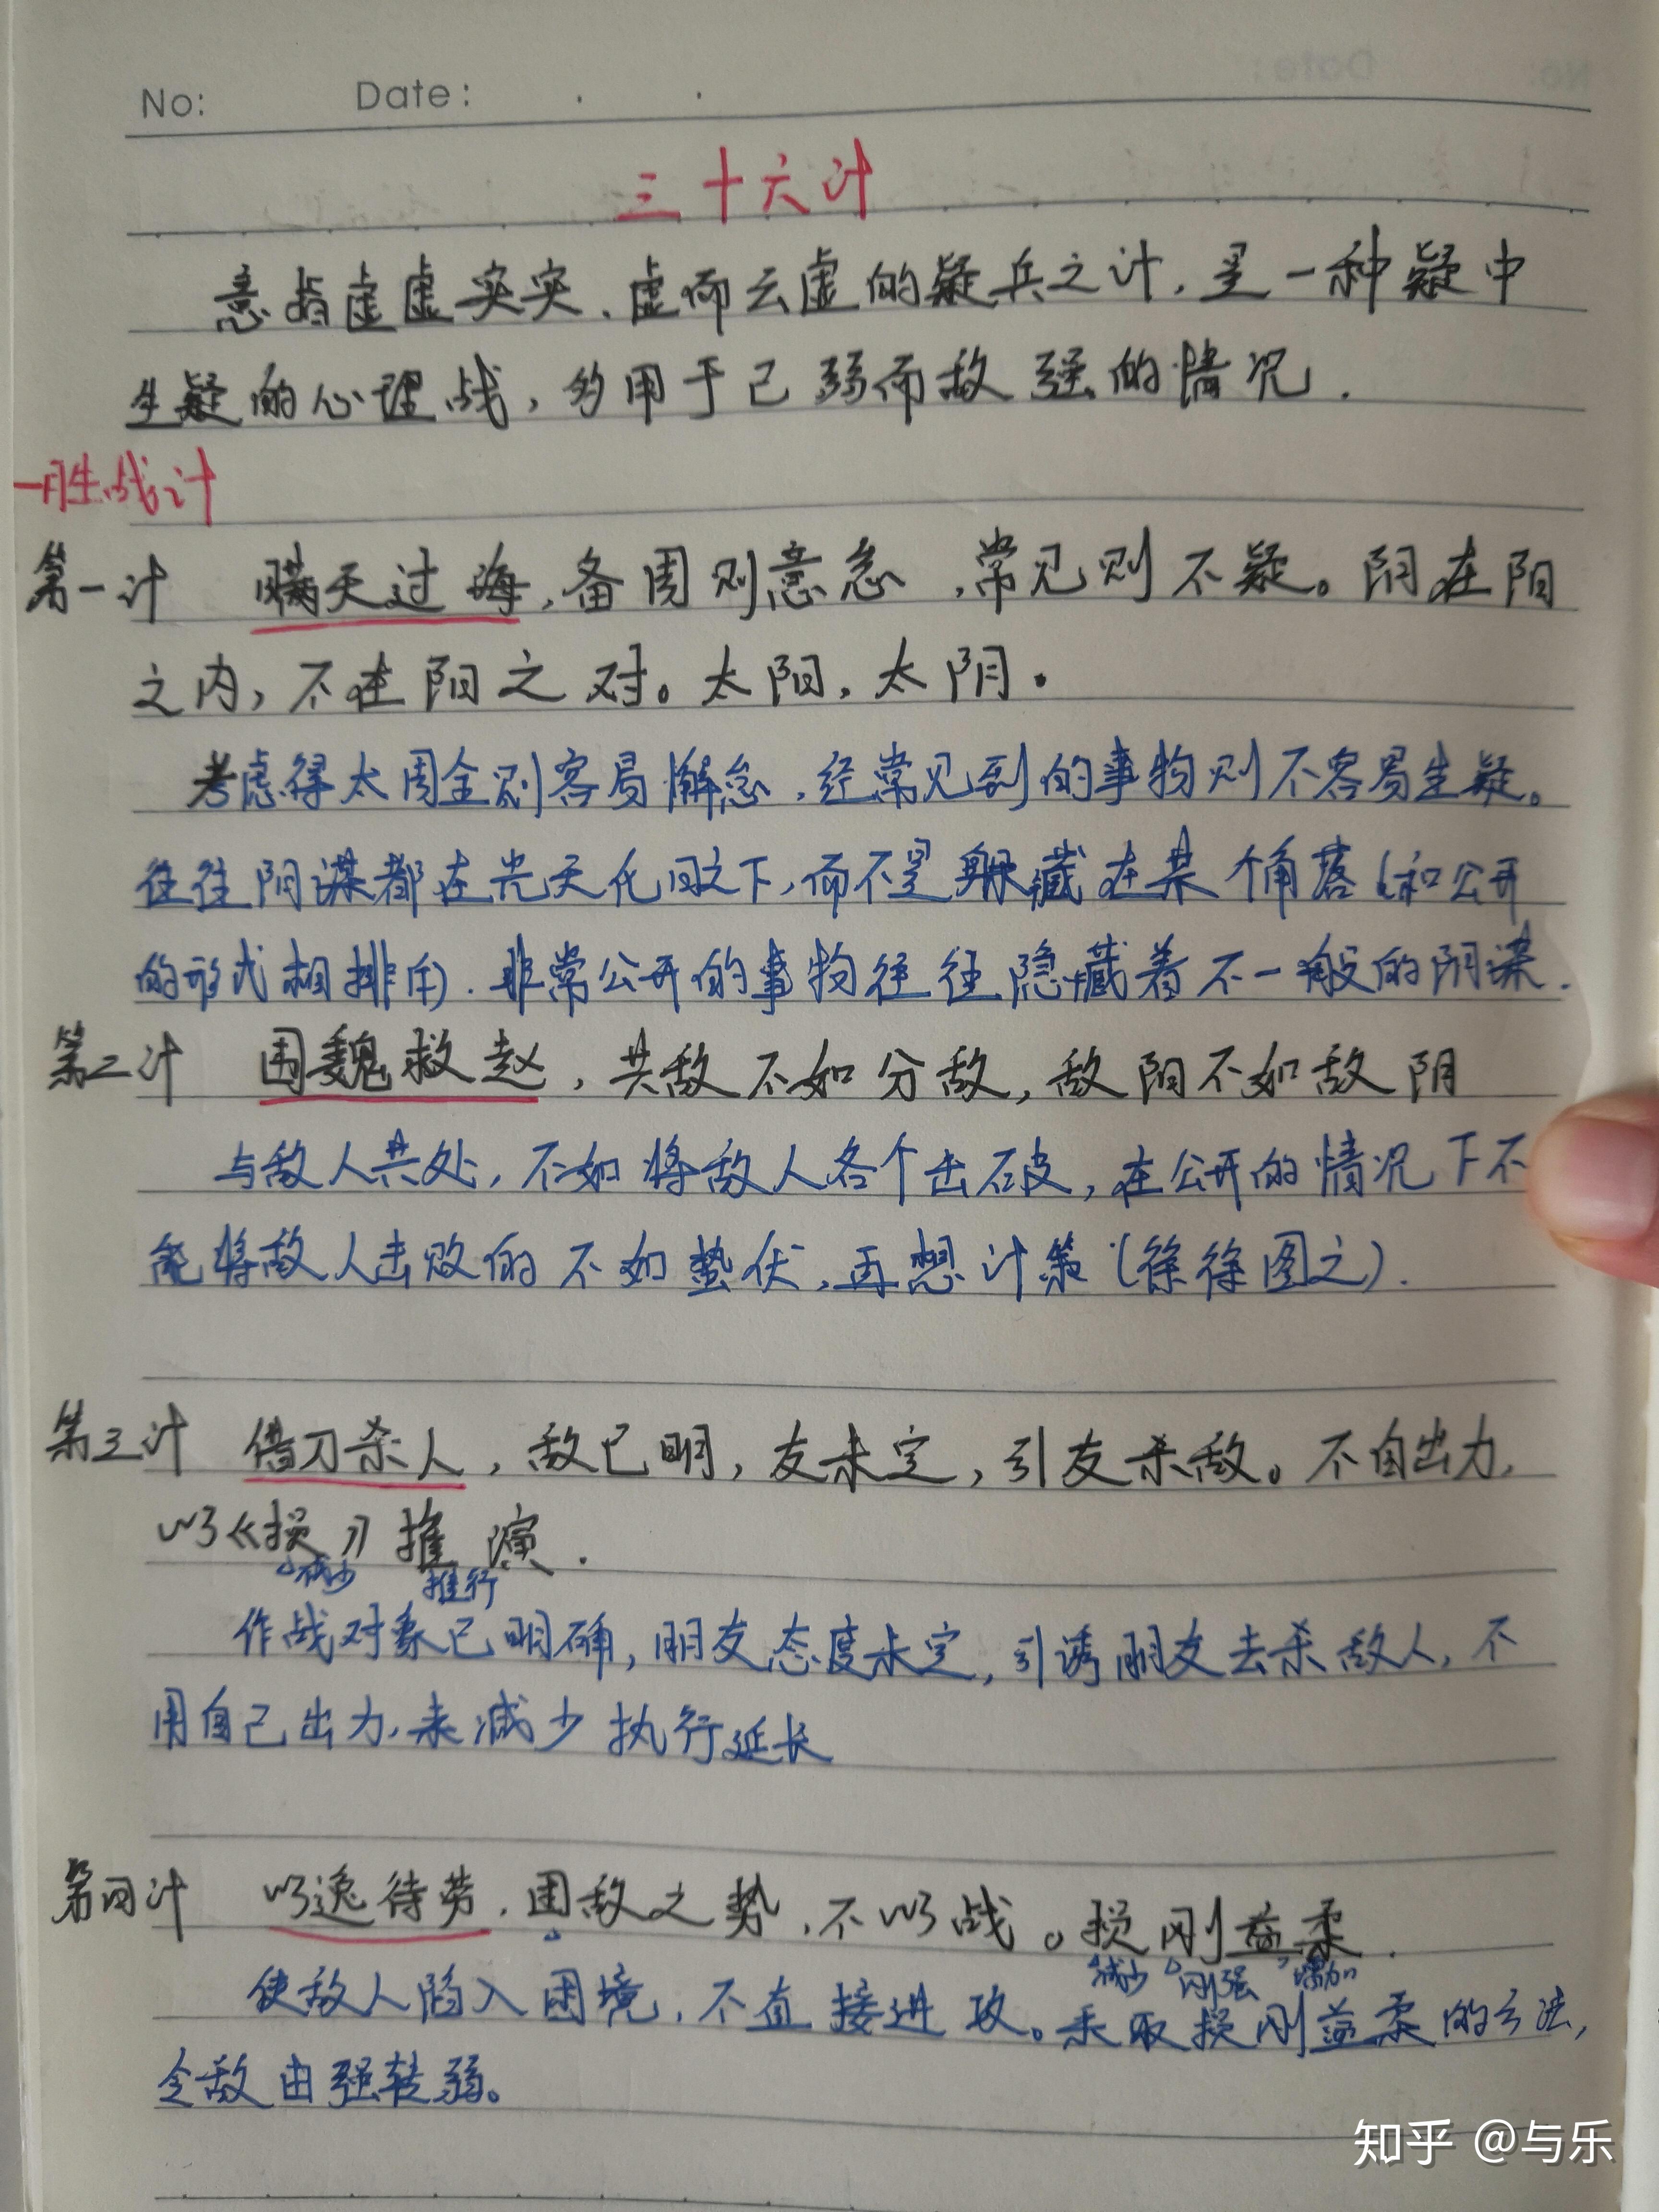 No: Date: . .
三十六计
意指虚虚实实、虚而云虚的疑兵之计,是一种疑中
生疑的心理战,多用于己弱而敌强的情况.
一胜战计
第一计 瞒天过海,备周则意怠,常见则不疑。阴在阳
之内,不在阳之对。太阳,太阴.
考虑得太周全则容易懈怠,经常见到的事物则不容易生疑。
往往阴谋都在光天化日之下,而不是躲藏在某个角落(和公开
的形式相排斥).非常公开的事物往往隐藏着不一般的阴谋.
第二计 围魏救赵,共敌不如分敌,敌阳不如敌阴
与敌人共处,不如将敌人各个击破,在公开的情况下不
能将敌人击败的不如蛰伏,再想计策(徐徐图之).
第三计 借刀杀人,敌已明,友未定,引友杀敌。不自出力,
以《损》推演.
减少 推行
作战对象已明确,朋友态度未定,引诱朋友去杀敌人,不
用自己出力,来减少执行延长
第四计 以逸待劳,困敌之势,不以战。损刚益柔.
减少 刚强 增加
使敌人陷入困境,不直接进攻。采取损刚益柔的方法,
令敌由强转弱。
知乎 @与乐